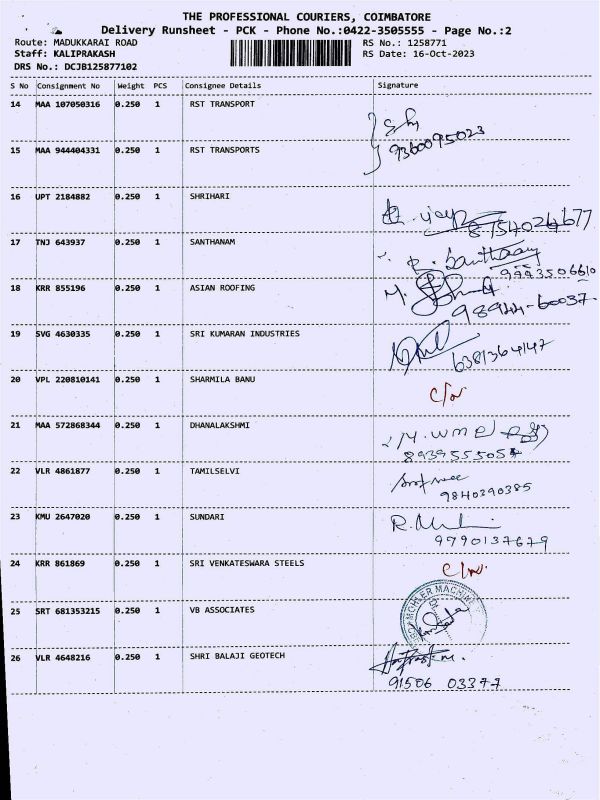 THE PROFESSIONAL COURIERS, COIMBATORE
Delivery Runsheet - PCK - Phone No.:0422-3505555 - Page No.:2
Route: MADUKKARAI ROAD RS No.: 1258771
Staff: KALIPRAKASH RS Date: 16-Oct-2023
DRS No.: DCJB125877102
S No Consignment No Weight PCS Consignee Details Signature
14 MAA 107050316 0.250 1 RST TRANSPORT
9360095023
15 MAA 944404331 0.250 1 RST TRANSPORTS
16 UPT 2184882 0.250 1 SHRIHARI
8754024677
17 TNJ 643937 0.250 1 SANTHANAM
9993506610
18 KRR 855196 0.250 1 ASIAN ROOFING
98944-60037
19 SVG 4630335 0.250 1 SRI KUMARAN INDUSTRIES
6381364147
20 VPL 220810141 0.250 1 SHARMILA BANU
21 MAA 572868344 0.250 1 DHANALAKSHMI
8939555054
22 VLR 4861877 0.250 1 TAMILSELVI
9840290385
23 KMU 2647020 0.250 1 SUNDARI
9790137679
24 KRR 861869 0.250 1 SRI VENKATESWARA STEELS
25 SRT 681353215 0.250 1 VB ASSOCIATES
26 VLR 4648216 0.250 1 SHRI BALAJI GEOTECH
91506 03377